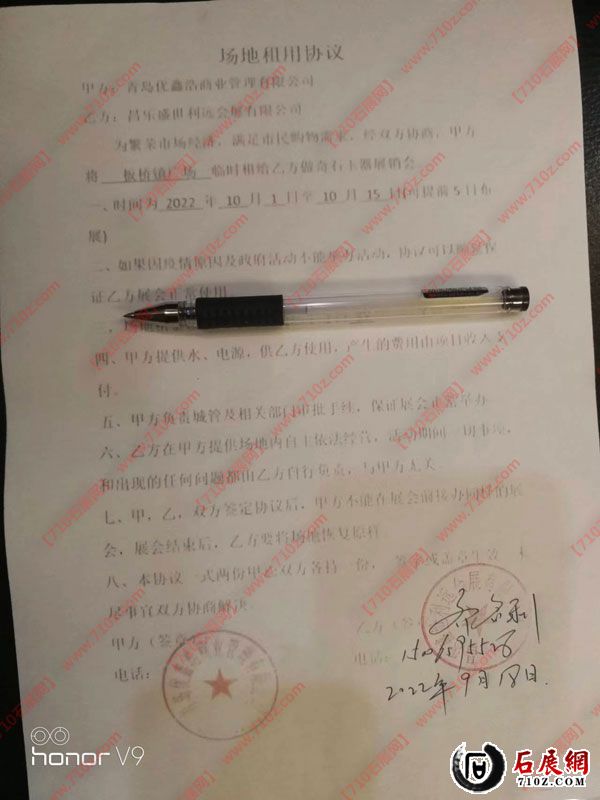 场地租用协议
甲方：青岛优鑫浩商业管理有限公司
乙方：昌乐盛世利远会展有限公司
为繁荣市场经济，满足市民购物需求，经双方协商，甲方
将 板桥镇广场 临时租给乙方做奇石玉器展销会
一、时间为 2022 年 10 月 1 日至 10 月 15 日(可提前5日布
展)
二、如果因疫情原因及政府活动不能举办活动，协议可以顺延保
证乙方展会正常使用
四、甲方提供水、电源，供乙方使用，产生的费用由项目收入支
付。
五、甲方负责城管及相关部门审批手续，保证展会正常举办
六、乙方在甲方提供场地内自主依法经营，活动期间一切事项，
和出现的任何问题都由乙方自行负责，与甲方无关
七、甲，乙，双方签定协议后，甲方不能在展会前接办同样的展
会，展会结束后，乙方要将场地恢复原样
八、本协议一式两份甲乙双方各持一份， 签字或盖章生效 未
尽事宜双方协商解决
甲方（签章）
乙方（签
电话：
电话：
2022年9月18日
honor V9
石展網
710z.com
【710石展网】www.710z.com